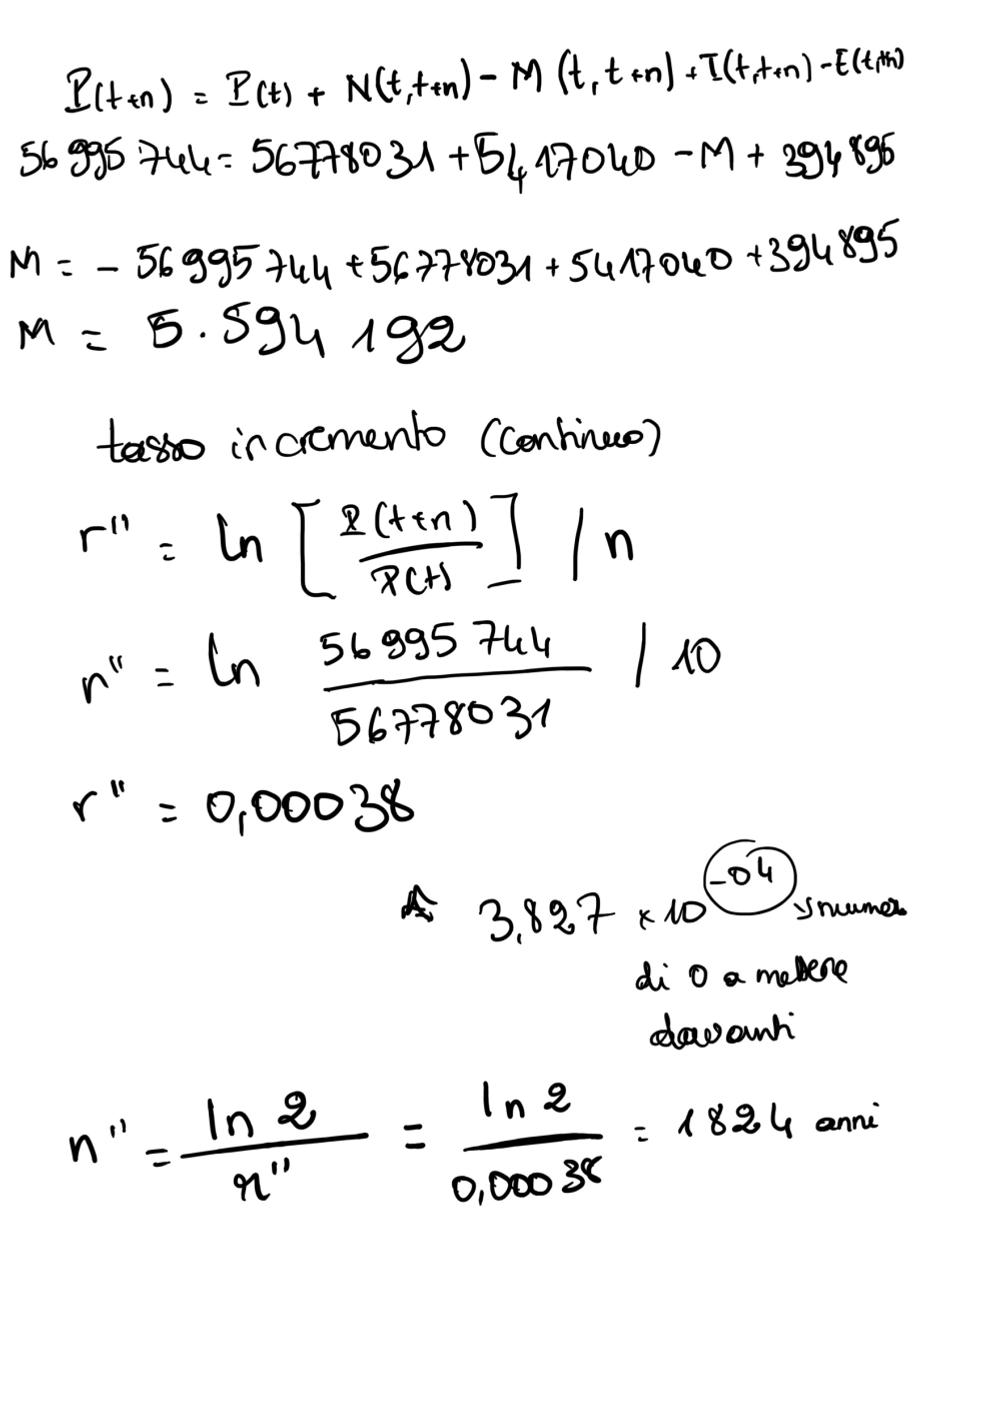 P(t+n) = P(t) + N(t,t+n) - M(t,t+n) + I(t,t+n) - E(t,t+n)
56 995 744 = 56778031 + 5417040 - M + 394 895
M = - 56 995 744 + 56 778031 + 5417040 + 394 895
M = 5.594 192
tasso incremento (continuo)
r'' = ln [P(t+n) / P(t)] / n
r'' = ln 56 995 744 / 56778031 / 10
r'' = 0,00038
3,827 × 10^-04 → numero
di 0 a mettere
davanti
n'' = ln 2 / r'' = ln 2 / 0,00038 = 1824 anni